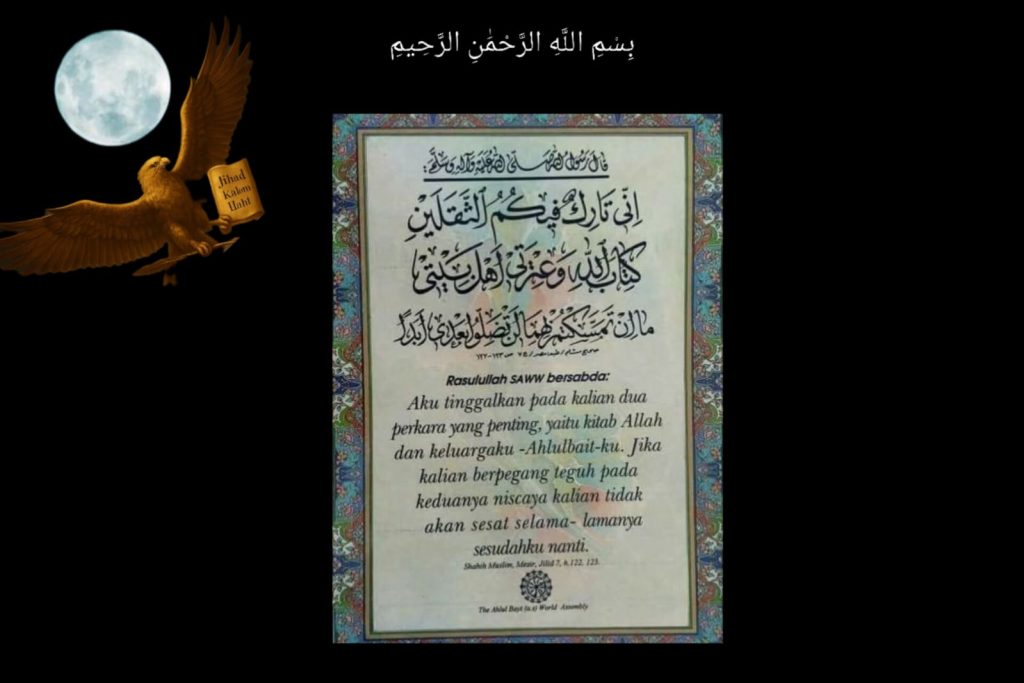 بِسْمِ اللَّهِ الرَّحْمَٰنِ الرَّحِيمِ
Jihad
Kalam
Ilahi
قَالَ رَسُولُ اللهِ صَلَّى اللهُ عَلَيْهِ وَآلِهِ وَسَلَّمَ:
اِنِّی تَارِكٌ فِيكُمُ الثَّقَلَيْنِ
كِتَابَ اللهِ وَعِتْرَتِی اَهْلَ بَيْتِی
مَا اِنْ تَمَسَّكْتُمْ بِهِمَا لَنْ تَضِلُّوا بَعْدِی اَبَدًا
Rasulullah SAWW bersabda:
Aku tinggalkan pada kalian dua
perkara yang penting, yaitu kitab Allah
dan keluargaku -Ahlulbait-ku. Jika
kalian berpegang teguh pada
keduanya niscaya kalian tidak
akan sesat selama- lamanya
sesudahku nanti.
Shahih Muslim, Mesir, Jilid 7, h.122, 123.
The Ahlul Bayt (a.s) World Assembly